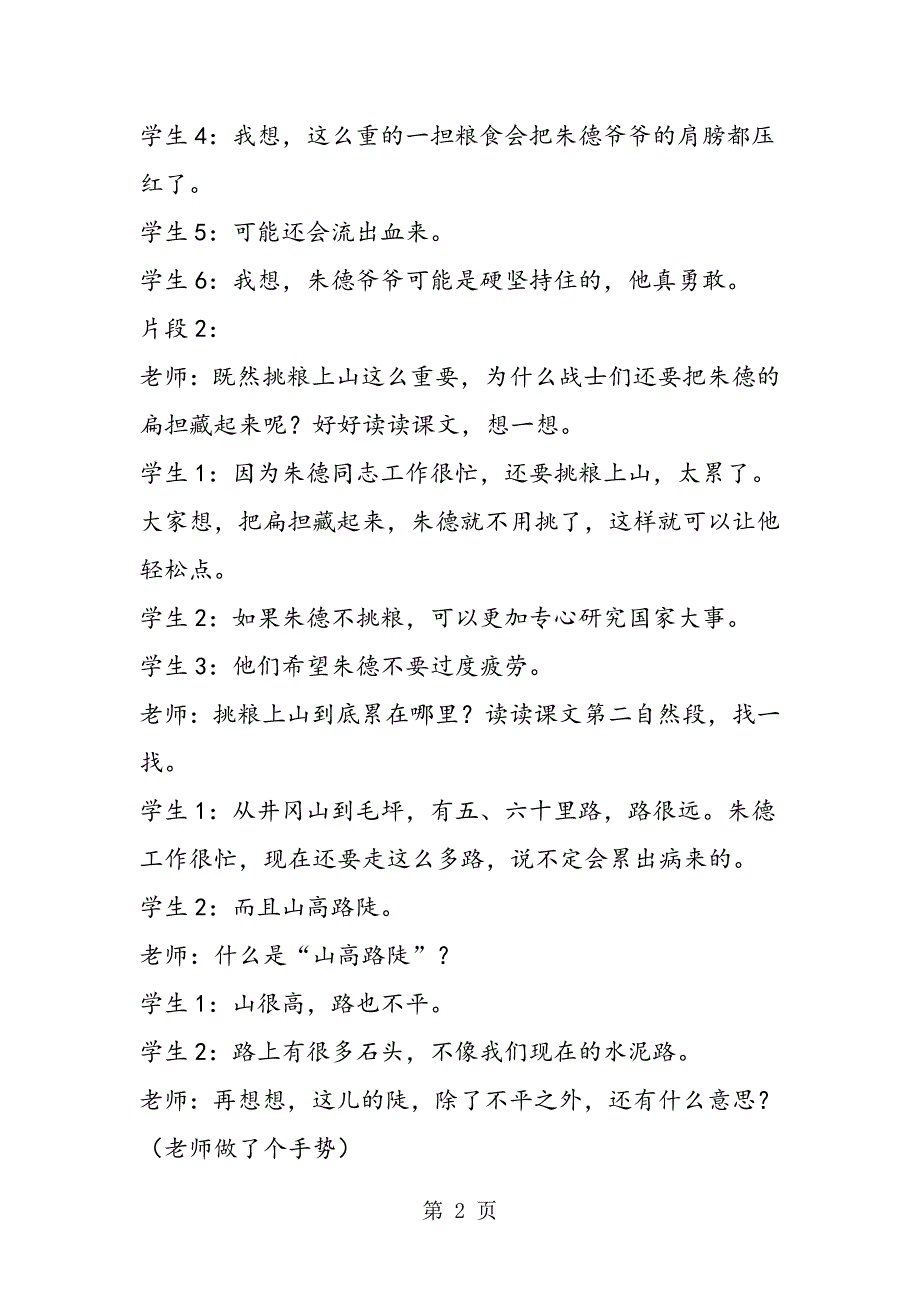 学生4：我想，这么重的一担粮食会把朱德爷爷的肩膀都压
红了。
学生5：可能还会流出血来。
学生6：我想，朱德爷爷可能是硬坚持住的，他真勇敢。
片段2：
老师：既然挑粮上山这么重要，为什么战士们还要把朱德的
扁担藏起来呢？好好读读课文，想一想。
学生1：因为朱德同志工作很忙，还要挑粮上山，太累了。
大家想，把扁担藏起来，朱德就不用挑了，这样就可以让他
轻松点。
学生2：如果朱德不挑粮，可以更加专心研究国家大事。
学生3：他们希望朱德不要过度疲劳。
老师：挑粮上山到底累在哪里？读读课文第二自然段，找一
找。
学生1：从井冈山到毛坪，有五、六十里路，路很远。朱德
工作很忙，现在还要走这么多路，说不定会累出病来的。
学生2：而且山高路陡。
老师：什么是“山高路陡”？
学生1：山很高，路也不平。
学生2：路上有很多石头，不像我们现在的水泥路。
老师：再想想，这儿的陡，除了不平之外，还有什么意思？
（老师做了个手势）
第 2 页